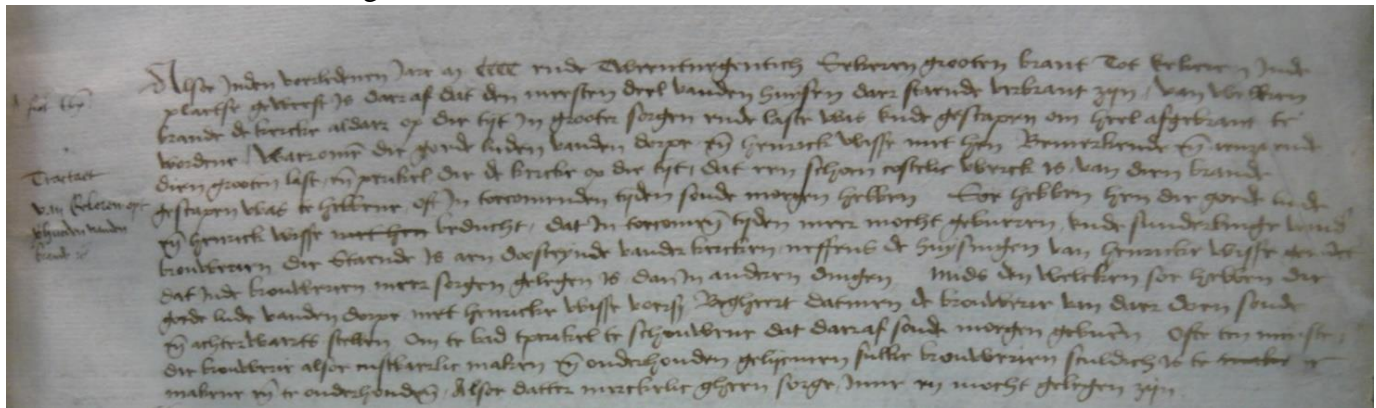 Alsoe Inden voerledenen Jare a° CCCC ende Tweentnegentich Sekeren grooten brant Tot kekeren Inde
plaetse geweest Is daer af dat den meesten deel vanden huysen daer staende verbrant zijn, van welken
brande de kercke aldaer op die tijt In grooter sorgen ende laste was ende gescapen om heel afgebrant te
wordene, Waeromme die goede lieden vanden dorpe eñ henrick wisse met hen Bemerkende eñ
dien grooten last, eñ perikel die de kercke op die tijt, dat een schoen costelic werck is, van dien brande
gescapen was te hebbene, oft In toecomenden tijden soude moegen hebben Soe hebben hen die goede lude
eñ henrick wisse beducht, dat In toecomen tijden meer mocht gebueren, ende sunderlinge vand
brouwerien die Staende Is aen doosteynde vander kercken, neffens de huysingen van henricke wisse
dat Inde brouwerien meer sorgen gelegen is dan In anderen dingen Mids den welcken soe hebben die
goede lude vanden dorpe met henricke wisse voers. Begheert datmen de brouwerie van daer doen soude
eñ achterwaerts stellen Om te bad tperikel te schouwene dat daeraf soude moegen gebueren Ofte ten minste,
die brouwerie alsoe custbaerlic maken eñ onderhouden gelijcmen sulke brouwerien sculdich is te
makene eñ te onderhouden, Alsoe datter merckelic gheen sorge Inne en mocht gelegen zijn
Tractaet
van
vanden
brande